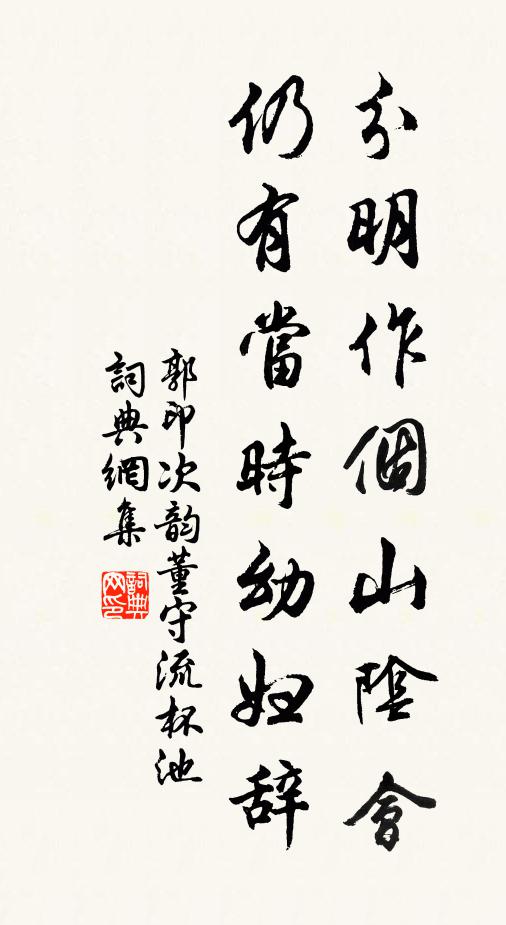 分明作個山陰會
仍有當時幼妇辞
郭印次韵董守流杯池
詞典網集
詞典网印